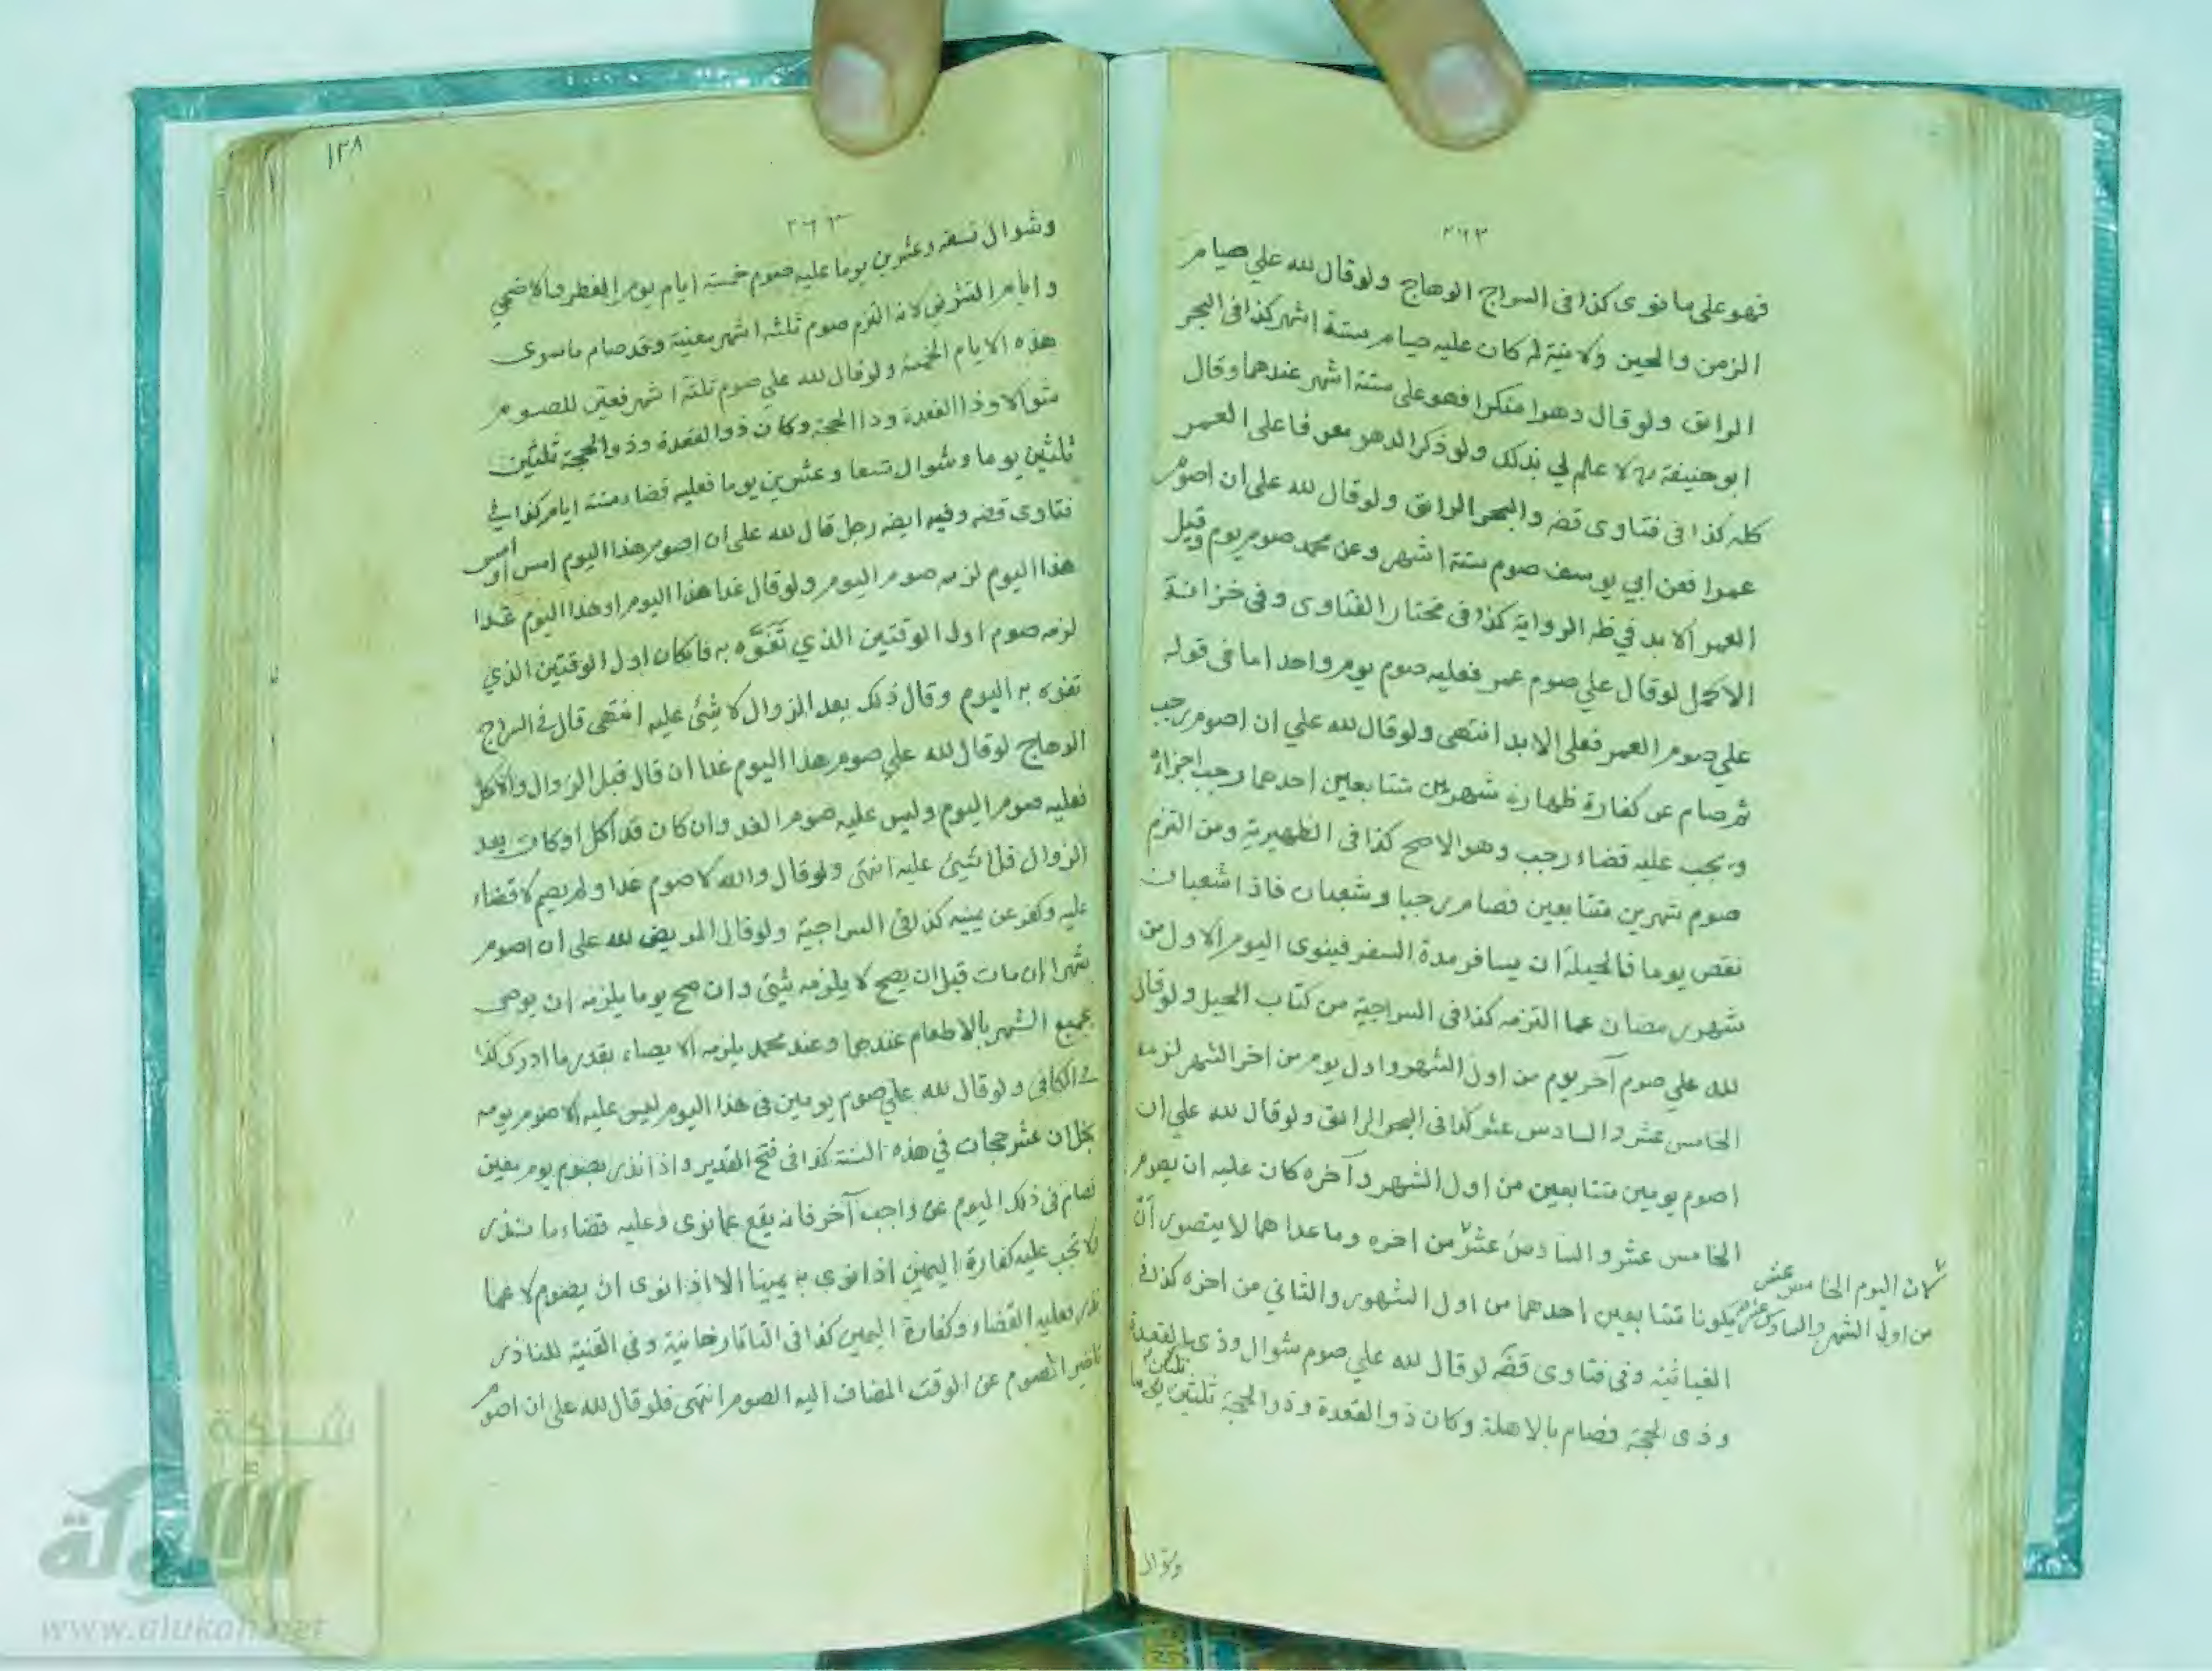 ٢٦٣
فهو على ما نوى كذا فى السراج الوهاج ولو قال لله علي صيام
الزمن والحين ولا نية له كان عليه صيام ستة اشهر كذا فى البحر
الرائق ولو قال دهرا منكرا فهو على ستة اشهر عندهما وقال
ابو حنيفة لا علم لي بذلك ولو ذكر الدهر معرفا على العمر
كله كذا فى فتاوى قضه والبحر الرائق ولو قال لله على ان اصوم
عمرا فعن ابي يوسف صوم ستة اشهر وعن محمد صوم يوم وقيل
العمر الابد في ظه الرواية كذا فى مختار الفتاوى وفى خزانة
الاكمل لو قال علي صوم عمر فعليه صوم يوم واحد اما فى قوله
علي صوم العمر فعلى الابد انتهى ولو قال لله علي ان اصوم رجب
ثم صام عن كفارة ظهاره شهرين متتابعين احدهما رجب اجزاه
ويجب عليه قضاء رجب وهو الاصح كذا فى الظهيرية ومن التزم
صوم شهرين متتابعين فصام رجبا وشعبان فاذا شعبان
نقص يوما فالحيلة ان يسافر مدة السفر فينوى اليوم الاول من
شهر رمضان عما التزمه كذا فى السراجية من كتاب الحيل ولو قال
لله علي صوم آخر يوم من اول الشهر واول يوم من اخر الشهر لزمه
الخامس عشر والسادس عشر كذا فى البحر الرائق ولو قال لله علي ان
اصوم يومين متتابعين من اول الشهر وآخره كان عليه ان يصوم
الخامس عشر والسادس عشر من اخره وما عداهما لا يتصور ان
لان اليوم الخامس عشر
من اول الشهر والسادس عشر
يكونا متتابعين احدهما من اول الشهر والثاني من اخره كذا فى
الغياثية وفى فتاوى قضه لو قال لله علي صوم شوال وذى القعدة
وذى الحجة فصام بالاهلة وكان ذو القعدة وذو الحجة ثلثين ثلثين يوما
وشوال
١٣٨
٢٦٣
وشوال تسعه وعشرين يوما عليه صوم خمسة ايام يوم الفطر والاضحي
وايام التشريق لانه التزم صوم ثلثه اشهر معينة وقد صام ما سوى
هذه الايام الخمسة ولو قال لله علي صوم ثلثة اشهر فعين للصوم
شوالا وذا القعدة وذا الحجة وكان ذو القعدة وذو الحجة ثلثين
ثلثين يوما وشوال تسعا وعشرين يوما فعليه قضاء ستة ايام كذا في
فتاوى قضه وفيه ايضه رجل قال لله على ان اصوم هذا اليوم امس او امس
هذا اليوم لزمه صوم اليوم ولو قال غدا هذا اليوم او هذا اليوم غدا
لزمه صوم اول الوقتين الذي تفوه به فان كان اول الوقتين الذي
تفوه به اليوم وقال ذلك بعد الزوال لا شئ عليه انتهى قال في السراج
الوهاج لو قال لله علي صوم هذا اليوم غدا ان قال قبل الزوال والاكل
فعليه صوم اليوم وليس عليه صوم الغد وان كان قد اكل او كان بعد
الزوال فلا شئ عليه انتهى ولو قال والله لاصوم غدا ولم يصم لا قضاء
عليه وكفر عن يمينه كذا فى السراجية ولو قال المريض لله على ان اصوم
شهرا ان مات قبل ان يصح لا يلزمه شئ وان صح يوما يلزمه ان يوصى
بجميع الشهر بالاطعام عندهما وعند محمد يلزمه الايصاء بقدر ما ادرك كذا
في الكافى ولو قال لله علي صوم يومين فى هذا اليوم ليس عليه الا صوم يومه
بخلان عشر حجات في هذه السنة كذا فى فتح القدير واذا نذر بصوم يوم معين
فصام فى ذلك اليوم عن واجب آخر فانه يقع عما نوى وعليه قضاء ما نذر
ولا تجب عليه كفارة اليمين اذا نوى به يمينا الا اذا نوى ان يصوم لا عما
نذر فعليه القضاء وكفارة اليمين كذا فى التاتارخانية وفى القنية للناذر
تاخير الصوم عن الوقت المضاف اليه الصوم انتهى فلو قال لله على ان اصوم
شبكة
الألوكة
www.alukah.net